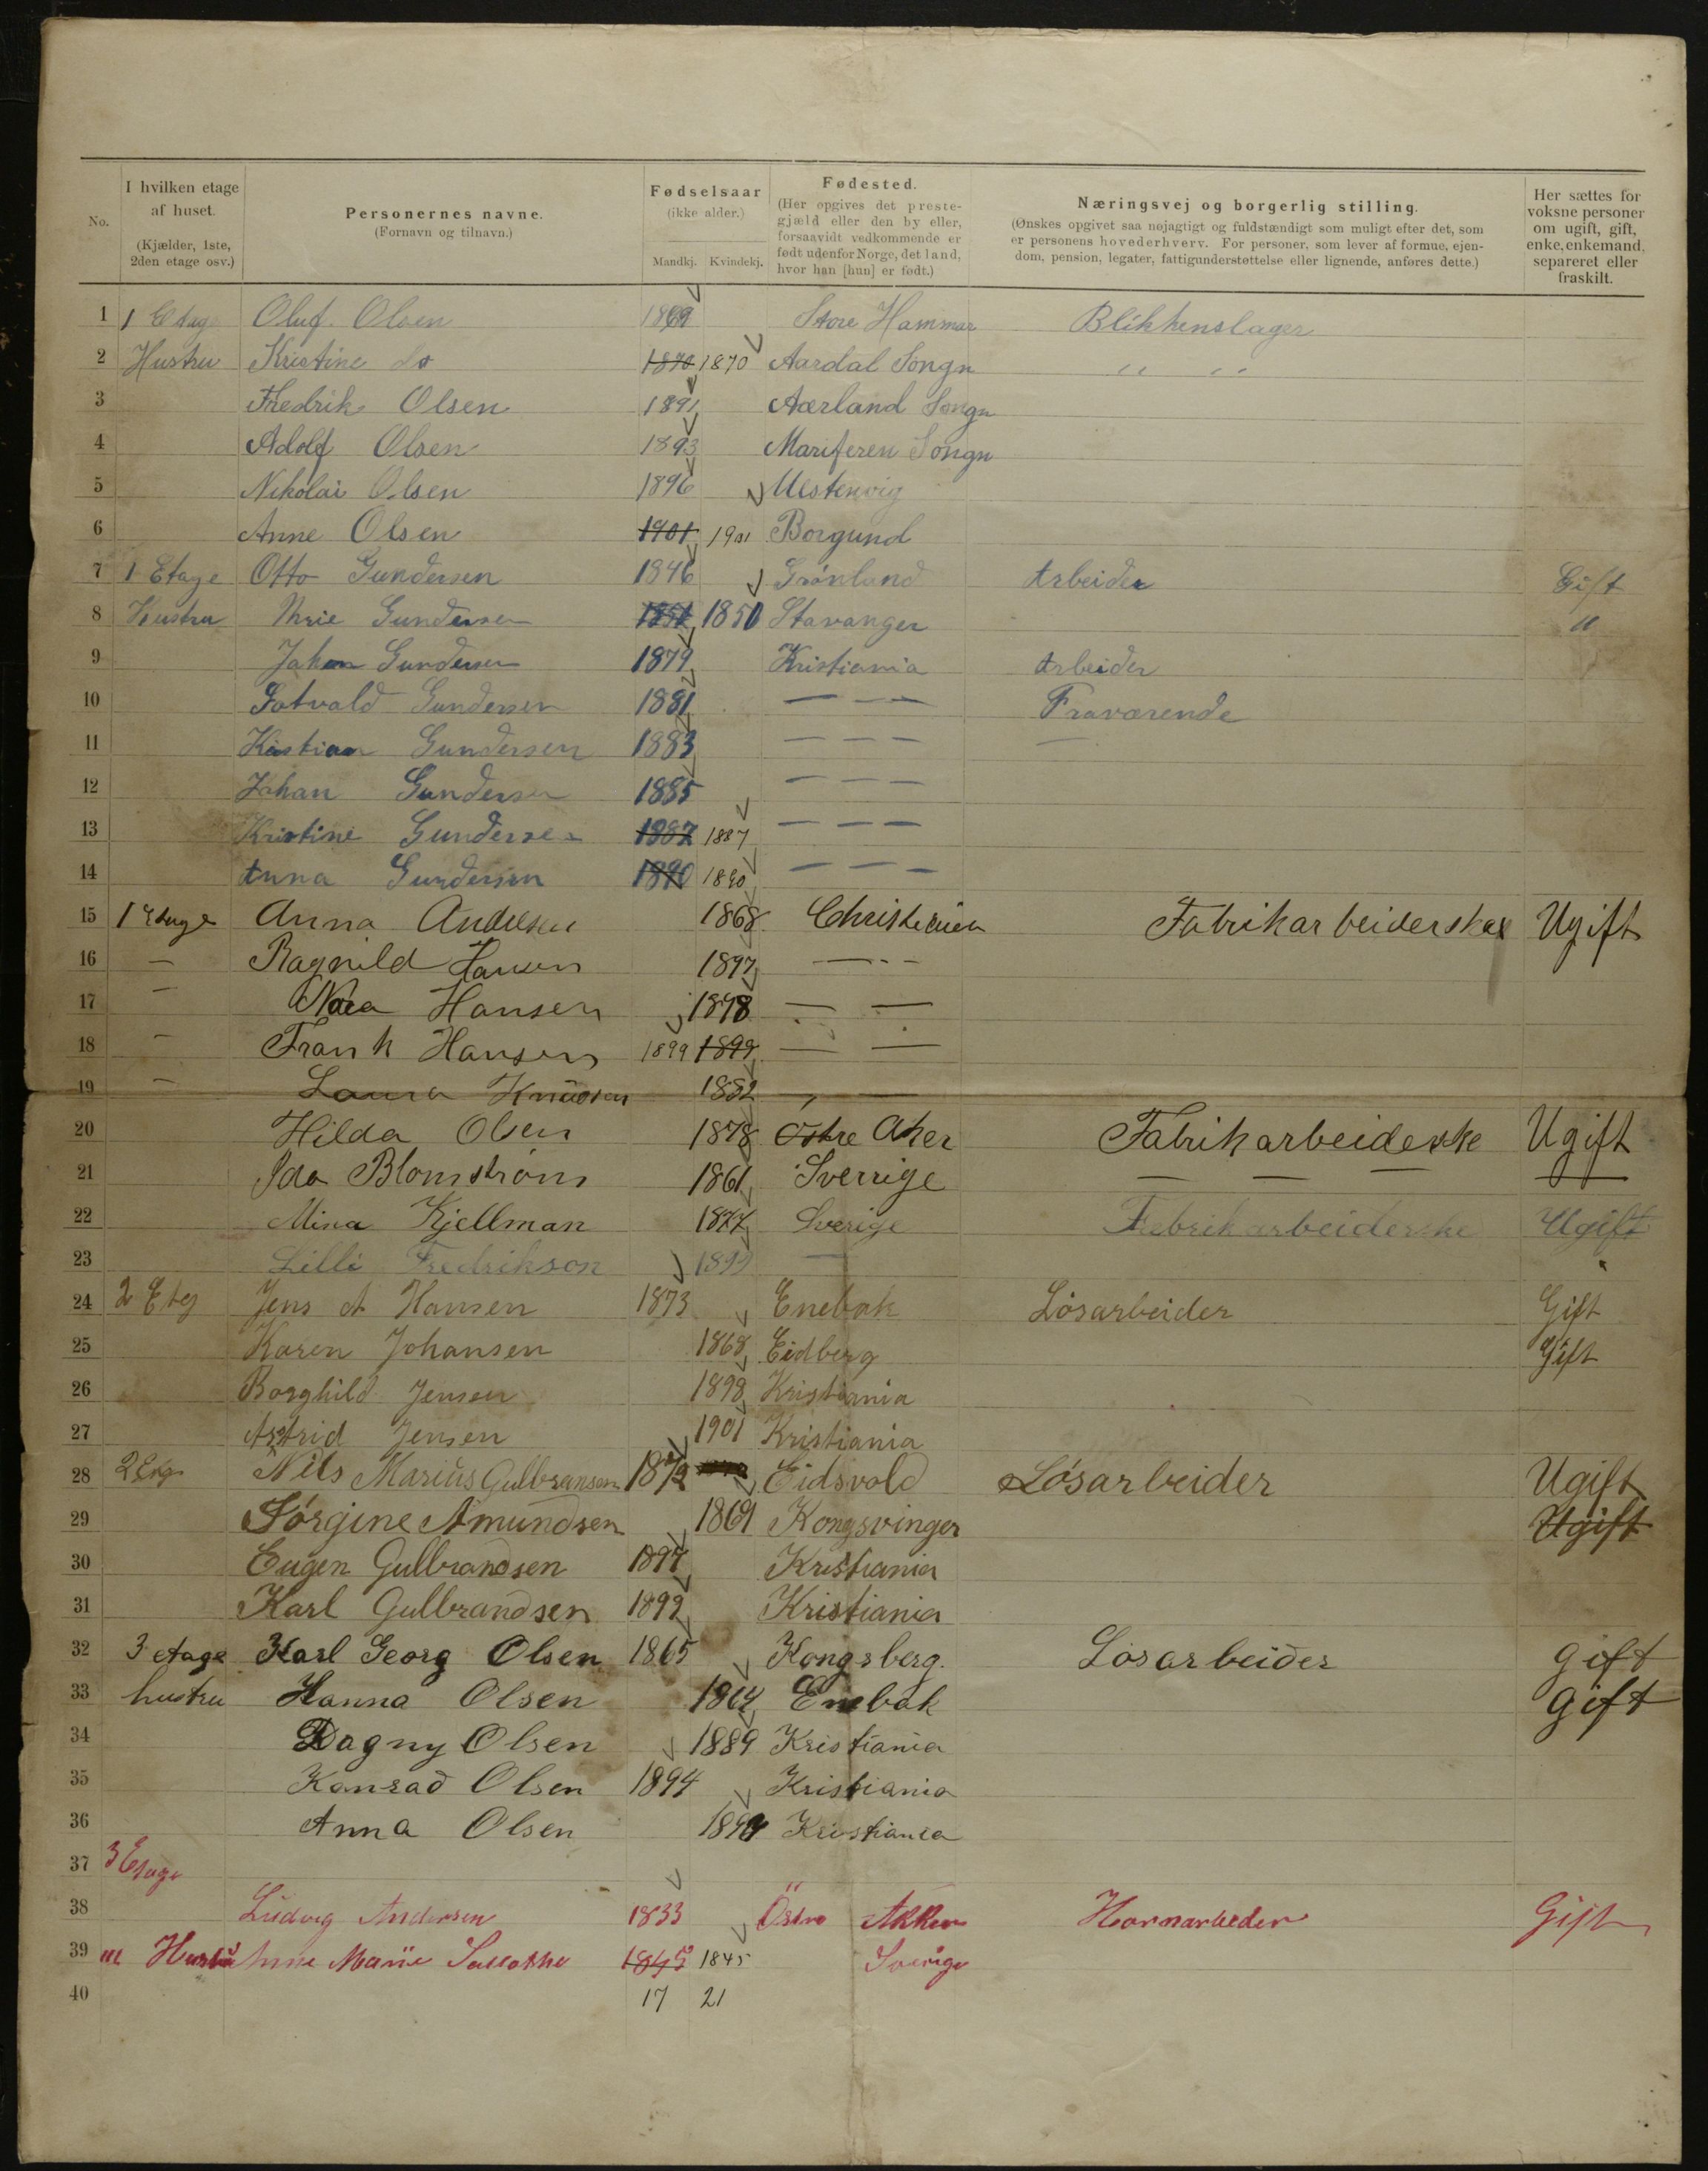 No.
I hvilken etage af huset.
(Kjælder, 1ste, 2den etage osv.)
Personernes navne.
(Fornavn og tilnavn.)
Fødselsaar
(ikke alder.)
Mandkj. Kvindekj.
Fødested.
(Her opgives det prestegjæld eller den by eller, forsaavidt vedkommende er født udenfor Norge, det land, hvor han [hun] er født.)
Næringsvej og borgerlig stilling.
(Ønskes opgivet saa nøjagtigt og fuldstændigt som muligt efter det, som er personens hovederhverv. For personer, som lever af formue, ejendom, pension, legater, fattigunderstøttelse eller lignende, anføres dette.)
Her sættes for voksne personer om ugift, gift, enke, enkemand, separeret eller fraskilt.
1 1 Etage Oluf Olsen 1869 Store Hammar Blikkenslager
2 Hustru Kristine do 1870 1870 Aardal Songn " "
3 Fredrik Olsen 1891 Aærland Songn
4 Adolf Olsen 1893 Mariferen Songn
5 Nikolai Olsen 1896
6 Anne Olsen 1901 1901 Borgund
7 1 Etage Otto Gundersen 1846 Grönland Arbeider Gift
8 Hustru Gundersen 1850 Stavanger "
9 Johan Gundersen 1879 Kristiania Arbeider
10 Gundersen 1881 — — — Fraværende
11 Kristian Gundersen 1883 — — — —
12 Johan Gundersen 1885 — — —
13 Kristine Gundersen 1887 1887 — — —
14 Anna Gundersen 1890 1890 — — —
15 1 Etage Anna Andersen 1868 Christiania Fabrikarbeiderske Ugift
16 — Ragnild Hansen 1897 — - -
17 — Nora Hansen 1898 — —
18 — Frank Hansen 1899 1899 — —
19 — Laura Knudsen 1882 , —
20 Hilda Olsen 1878 Østre Aker Fabrikarbeiderske Ugift
21 Ida Blomström 1861 Sverrige — — — —
22 Mina Kjellman 1877 Sverige Fabrikarbeiderske Ugift
23 Lilli Fredrikson 1899 —
24 2 Etg Jens A Hansen 1873 Enebak Lösarbeider Gift
25 Karen Johansen 1868 Eidberg Gift
26 Borghild Jensen 1898 Kristiania
27 Astrid Jensen 1901 Kristiania
28 2 Etg Nils Marius Gulbransen 1872 Eidsvold Lösarbeider Ugift
29 Jörgine Amundsen 1869 Kongsvinger Ugift
30 Eugen Gulbrandsen 1897 Kristiania
31 Karl Gulbrandsen 1899 Kristiania
32 3 etage Karl Georg Olsen 1865 Kongsberg. Losarbeider gift
33 hustru Hanna Olsen 1864 Enebak gift
34 Dagny Olsen 1889 Kristiania
35 Konrad Olsen 1894 Kristiania
36 Anna Olsen Kristiania
37 3 Etage
38 Ludvig Andersen 1833 Östre Akker Havnarbeder Gift
39 Hustru Anne Marie 1845 1845 Sverige
40 17 21